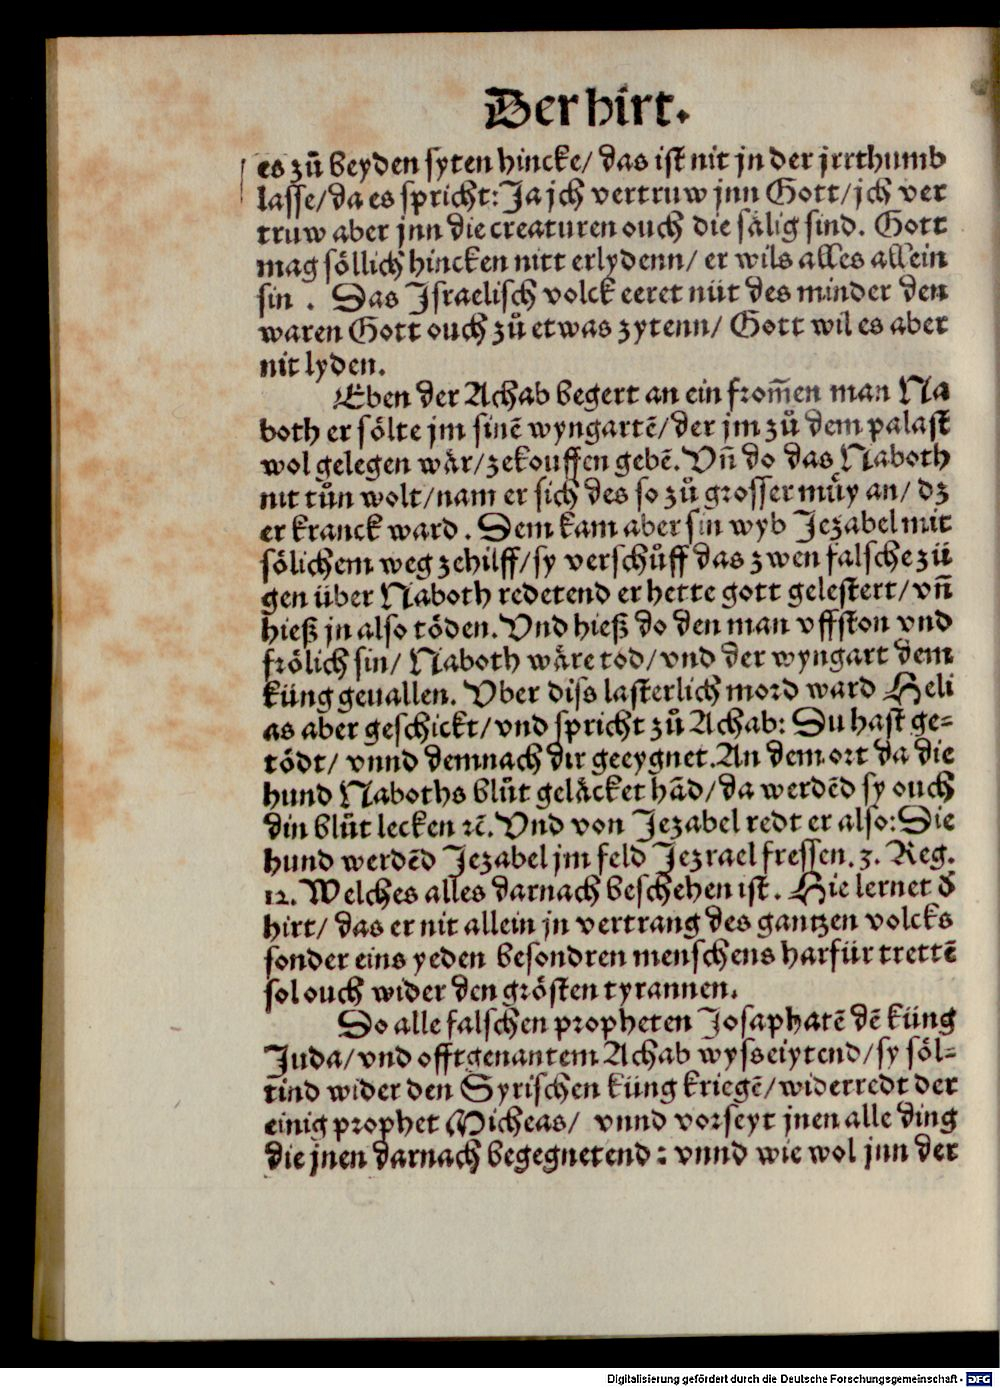 Der hirt.
es zů beyden syten hincke/ das ist nit jn der jrrthumb
lasse/ da es spricht: Ja jch vertruw jnn Gott/ jch ver
truw aber jnn die creaturen ouch die sälig sind. Gott
mag söllich hincken nitt erlydenn/ er wils alles allein
sin . Das Israelisch volck eeret nüt des minder den
waren Gott ouch zů etwas zytenn/ Gott wil es aber
nit lyden.
Eben der Achab begert an ein from̄en man Na
both er sölte jm sinē wyngartē/ der jm zů dem palast
wol gelegen wär/ zekouffen gebē. Vn̄ do das Naboth
nit tůn wolt/ nam er sich des so zů grosser můy an/ dz
er kranck ward . Dem kam aber sin wyb Jezabel mit
sölichem weg zehilff/ sy verschůff das zwen falsche zü
gen über Naboth redetend er hette gott gelestert/ vn̄
hieß jn also töden. Vnd hieß do den man vffston vnd
frölich sin/ Naboth wäre tod/ vnd der wyngart dem
küng geuallen. Vber diss lasterlich mord ward Heli
as aber geschickt/ vnd spricht zů Achab: Du hast ge=
tödt/ vnnd demnach dir geeygnet. An dem ort da die
hund Naboths blůt geläcket hād/ da werdēd sy ouch
din blůt lecken ꝛc̄. Vnd von Jezabel redt er also: Die
hund werdēd Jezabel jm feld Jezrael fressen. 3. Reg.
12. Welches alles darnach beschehen ist . Hie lernet d̕
hirt/ das er nit allein jn vertrang des gantzen volcks
sonder eins yeden besondren menschens harfür trettē
sol ouch wider den grösten tyrannen.
Do alle falschen propheten Josaphatē dē küng
Juda/ vnd offtgenantem Achab wysseiytend/ sy söl=
tind wider den Syrischen küng kriegē/ widerredt der
einig prophet Micheas/ vnnd vorseyt jnen alle ding
die jnen darnach begegnetend : vnnd wie wol jnn der
Digitalisierung gefördert durch die Deutsche Forschungsgemeinschaft - DFG